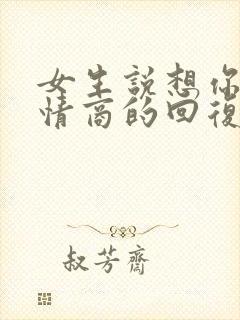 女生說想你
情商的回復
叔芳齋